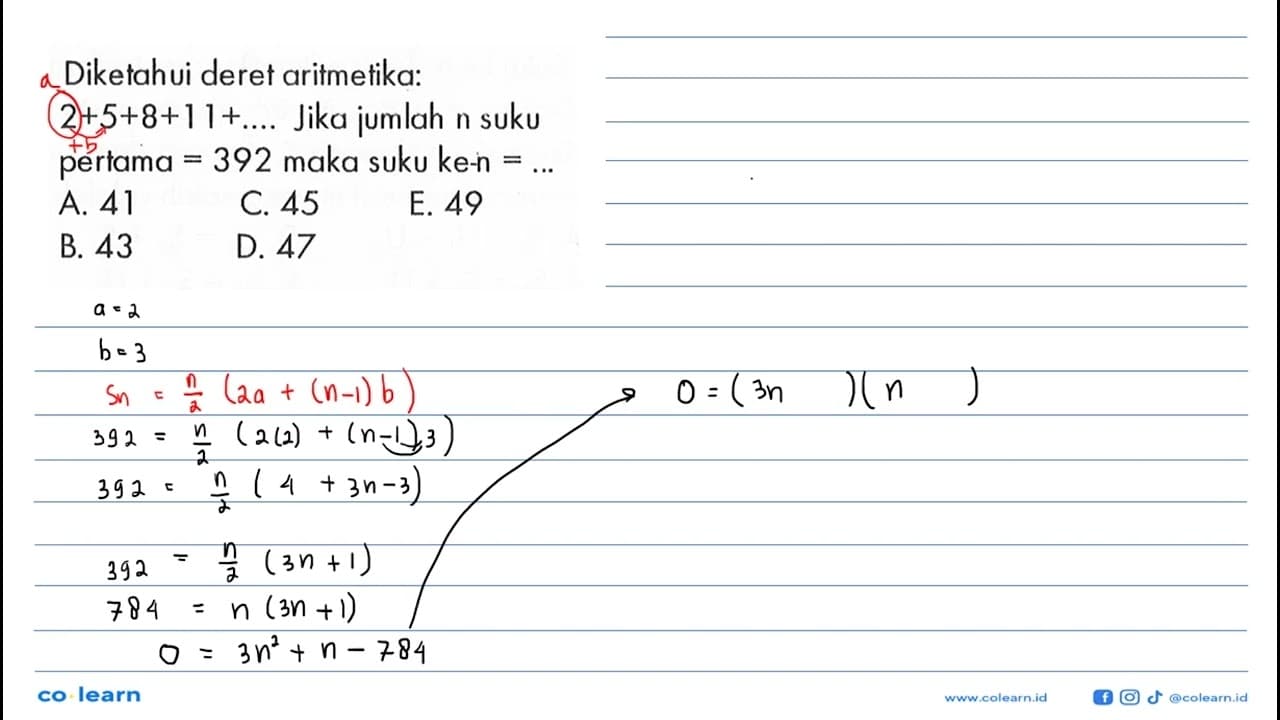 a Diketahui deret aritmetika:
2+5+8+11+.... Jika jumlah n suku
+b
pertama = 392 maka suku ke-n = ...
A. 41 C. 45 E. 49
B. 43 D. 47
a = 2
b = 3
Sn = n/2 (2a + (n-1) b)
392 = n/2 (2(2) + (n-1) 3)
392 = n/2 (4 + 3n-3)
392 = n/2 (3n + 1)
784 = n (3n + 1)
0 = 3n² + n - 784
0 = (3n )(n )
co learn
www.colearn.id @colearn.id